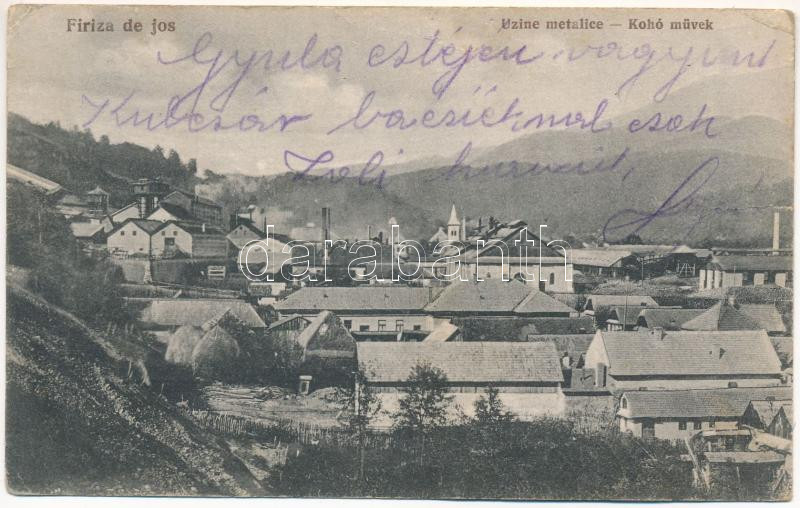 Firiza de jos
Uzine metalice — Kohó müvek
Gyula estéjen vagyunk
Kulcsár bacsiéknál csak
Zoli
darabanth